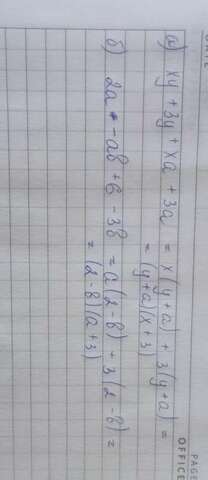 DATE
PAGE
OFFICE
а) xy + 3y + xa + 3a = x(y+a) + 3(y+a) =
= (y+a)(x+3)
б) 2a - aв + 6 - 3в = a(2-в) + 3(2-в) =
= (2-в)(a+3)